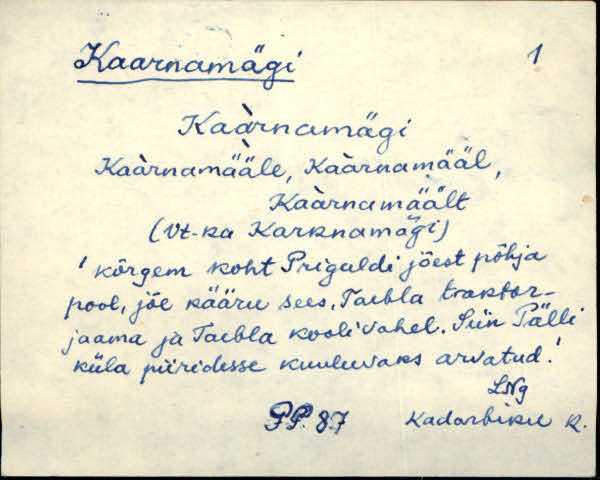 Kaarnamägi 1
Kaàrnamägi
Kaàrnamääle, Kaàrnamääl,
Kaàrnamäält
(Vt-ka Karknamägi)
' kõrgem koht Priguldi jõest põhja
pool, jõe kääru sees, Taebla traktor-
jaama ja Taebla kooli vahel. Siin Pälli
küla piiridesse kuuluvaks arvatud.'
LNg
PP. 87 Kadarbiku k.